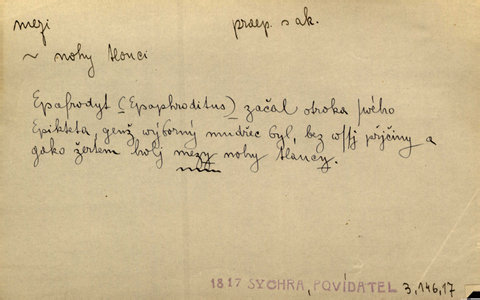 mezi praep. s ak.
~ nohy tlouci
Epafrodyt (Epaphroditus) začal otroka swého
Epikteta, genž wýborný mudřec byl, bez wssj přjčiny a
gako žertem holj mezy nohy tlaucy.
1817 SYCHRA, POVÍDATEL 3,146,17